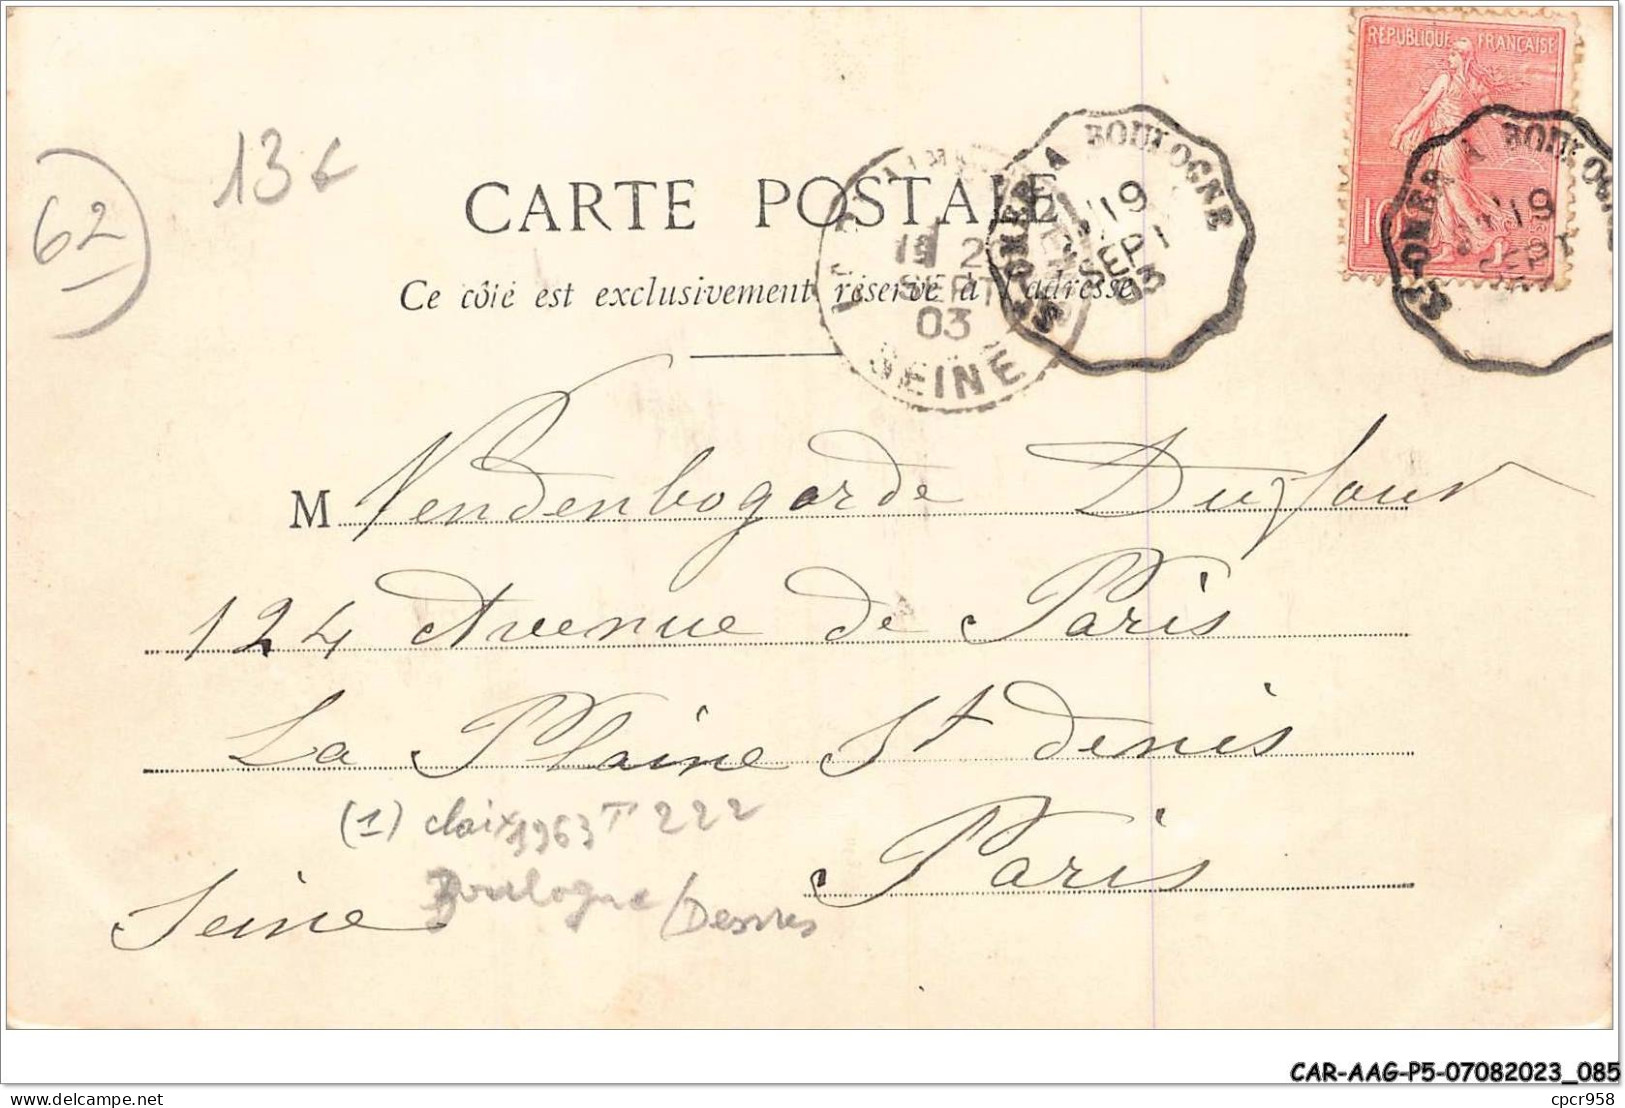 REPUBLIQUE FRANCAISE
10
ST-OMER A BOULOGNE
19
SEPT
ST-OMER A BOULOGNE
19
SEPT
03
2
SEPT
03
SEINE
62
13€
CARTE POSTALE
Ce côté est exclusivement réservé à l'adresse
M Vendenbogarde Dufour
124 Avenue de Paris
La Plaine St denis
(1) claix 1963 T 222
Paris
Seine
Boulogne/Desvres
CAR-AAG-P5-07082023_085
delcampe.net
cpcr958